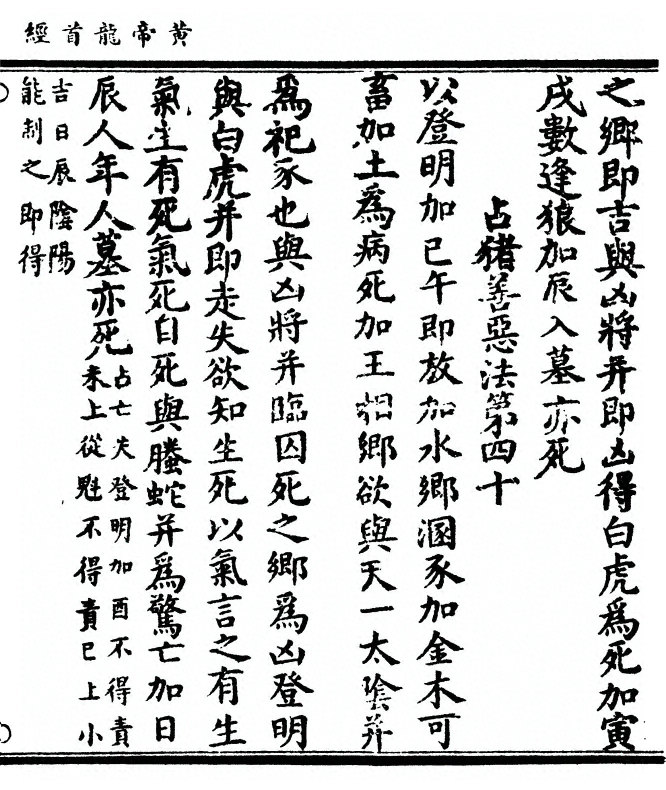 黃帝龍首經
之鄉即吉與凶將并即凶得白虎為死加寅
戌數逢狼加辰入墓亦死
占猪善惡法第四十
以登明加巳午即放加水鄉溷豕加金木可
畜加土為病死加王相鄉欲與天一太陰并
為祀豕也與凶將并臨囚死之鄉為凶登明
與白虎并即走失欲知生死以氣言之有生
氣生有死氣死自死與螣蛇并為驚亡加日
辰人年人墓亦死
占亡失登明加酉不得責
未上從魁不得責巳上小
吉日辰陰陽
能制之即得